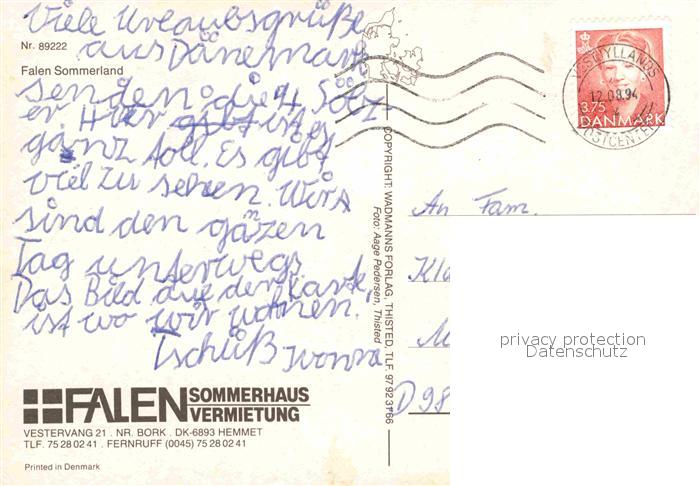 Viele Urlaubsgrüße
Nr. 89222
aus Dänemark
Falen Sommerland
senden die
er. Hier ist es
ganz toll. Es gibt
viel zu sehen. Wir
sind den gänzen
Tag unterwegs.
Das Bild auf der Karte,
ist wo wir wohnen.
Tschüß Ivonna
FALEN SOMMERHAUS
VERMIETUNG
VESTERVANG 21 . NR. BORK . DK-6893 HEMMET
TLF. 75 28 02 41 . FERNRUFF (0045) 75 28 02 41
Printed in Denmark
COPYRIGHT: WADMANNS FORLAG, THISTED, TLF. 97 92 31 66
Foto: Aage Pedersen, Thisted
VESTJYLLANDS
12.08.94
POSTCENTER
3.75
DANMARK
An Fam.
Kl
M
D 98
privacy protection
Datenschutz